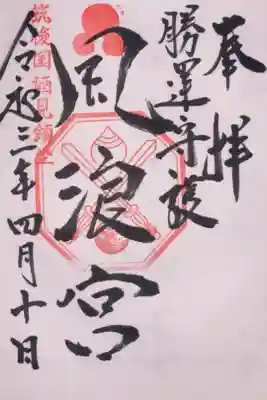 奉拝
勝運守護
風浪宮
筑後国酒見鎮座
令和三年四月十日